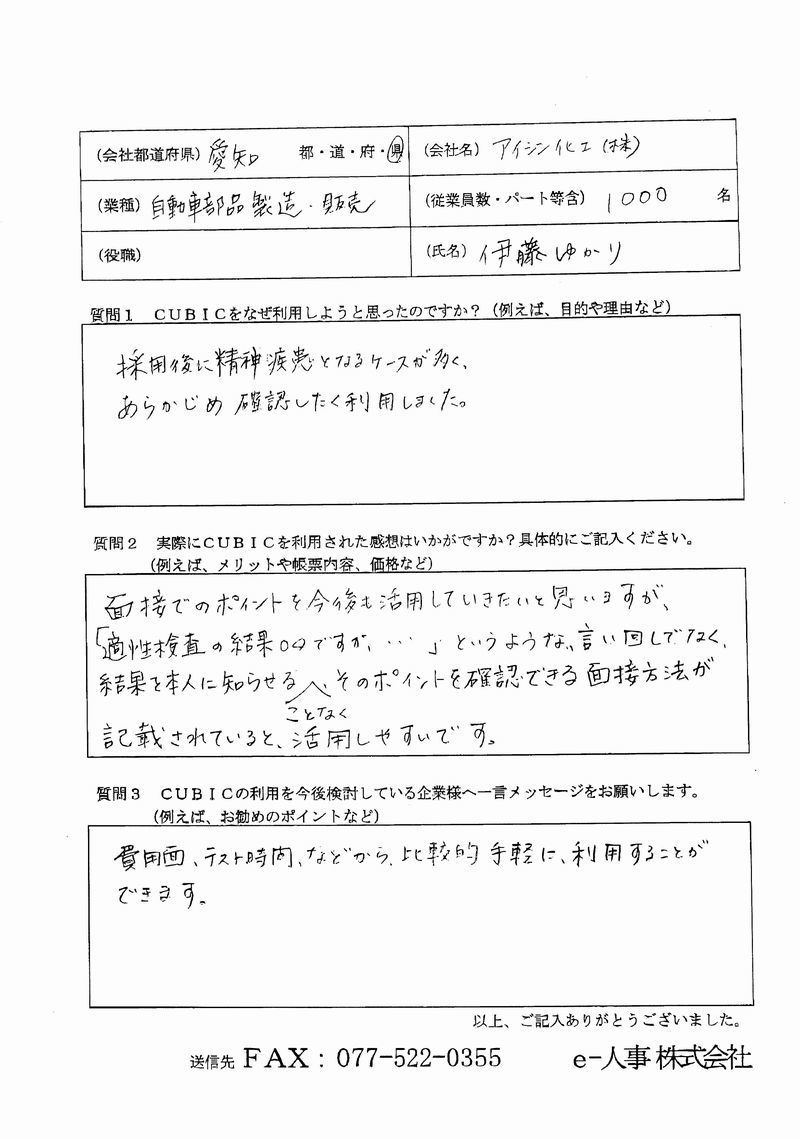 (会社都道府県) 愛知 都・道・府・県 (会社名) アイシン化工(株)
(業種) 自動車部品製造・販売 (従業員数・パート等含) 1000 名
(役職) (氏名) 伊藤ゆかり
質問1 CUBICをなぜ利用しようと思ったのですか?(例えば、目的や理由など)
採用後に精神疾患となるケースが多く、
あらかじめ確認したく利用しました。
質問2 実際にCUBICを利用された感想はいかがですか?具体的にご記入ください。
(例えば、メリットや帳票内容、価格など)
面接でのポイントを今後も活用していきたいと思いますが、
「適性検査の結果○○ですが、…」というような、言い回しでなく、
結果を本人に知らせることなく、そのポイントを確認できる面接方法が
記載されていると、活用しやすいです。
質問3 CUBICの利用を今後検討している企業様へ一言メッセージをお願いします。
(例えば、お勧めのポイントなど)
費用面、テスト時間、などから、比較的手軽に、利用することが
できます。
以上、ご記入ありがとうございました。
送信先 FAX:077-522-0355 e-人事株式会社